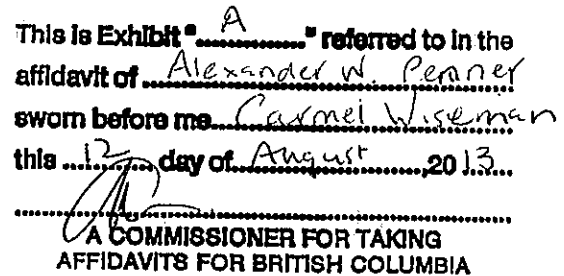 This is Exhibit "..... A ....." referred to in the
affidavit of ..... Alexander W. Penner
sworn before me ..... Carmel Wiseman
this ..... 12 ..... day of ..... August ....., 20 13 .....
A COMMISSIONER FOR TAKING
AFFIDAVITS FOR BRITISH COLUMBIA